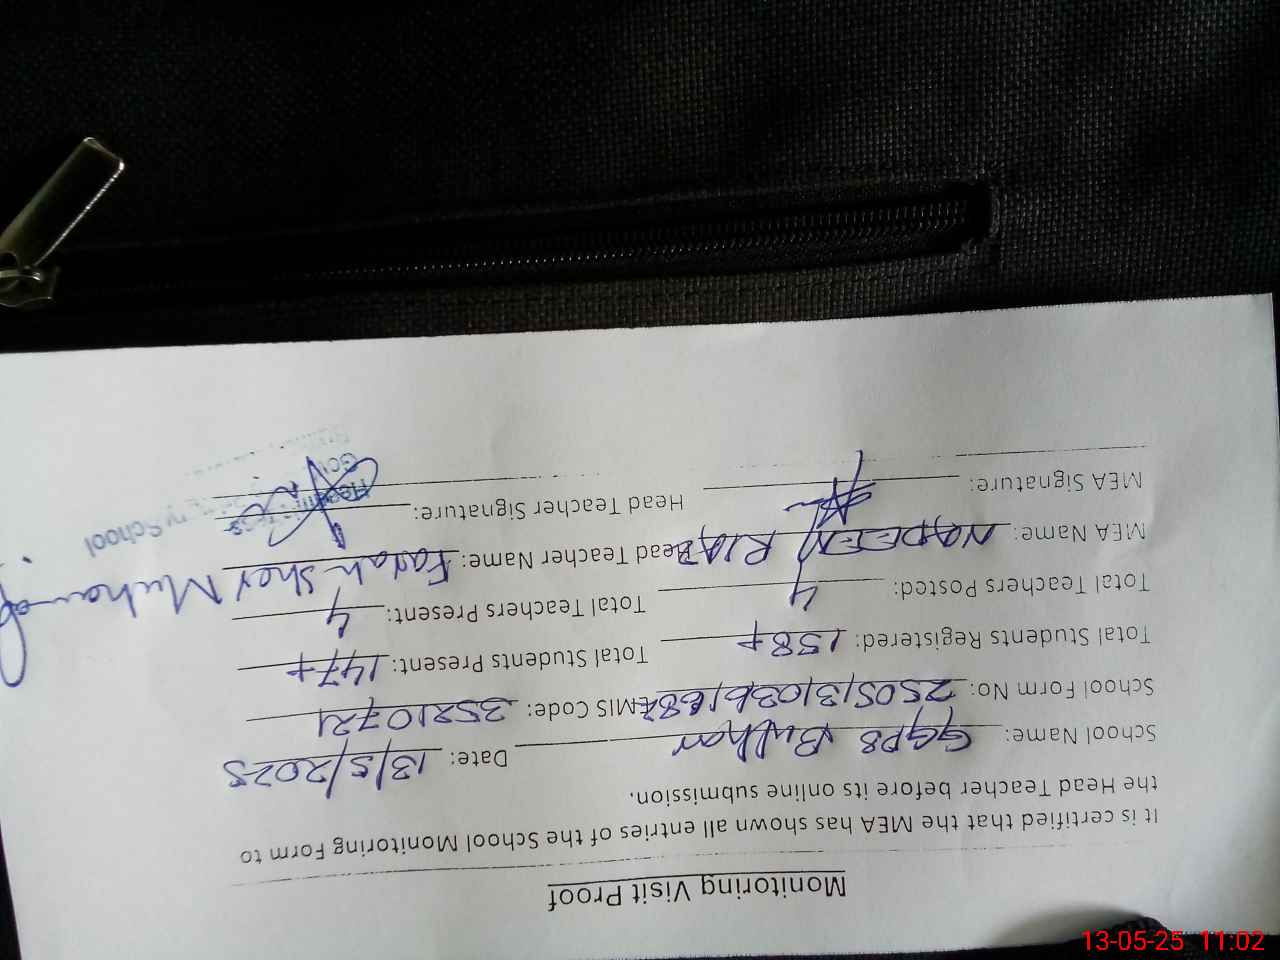 Monitoring Visit Proof
It is certified that the MEA has shown all entries of the School Monitoring Form to
the Head Teacher before its online submission.
School Name: GGPS Bulhar Date: 13/5/2025
School Form No: MIS Code: 35210721
Total Students Registered: 158+ Total Students Present: 147+
Total Teachers Posted: 4 Total Teachers Present: 4
MEA Name: NADEEM Head Teacher Name: Farah Sher Muhammad
MEA Signature: Head Teacher Signature:
School
13-05-25 11:02